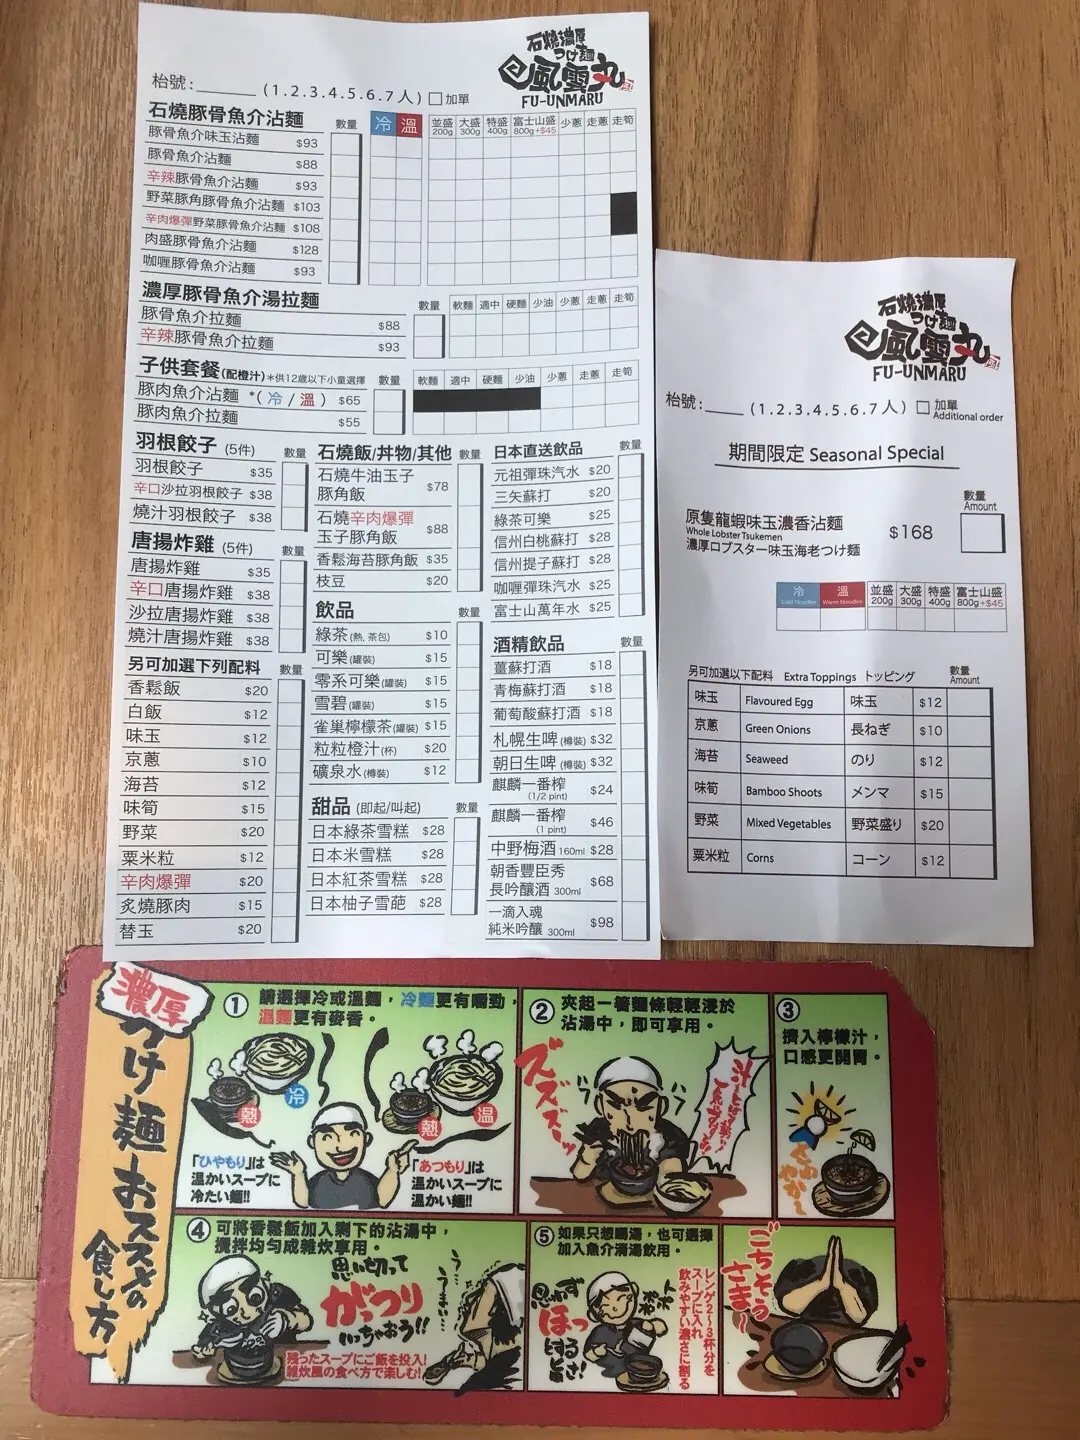 石燒濃厚
つけ麺
風雲丸
FU-UNMARU
枱號:______ (1.2.3.4.5.6.7人) □加單
石燒豚骨魚介沾麵 數量 冷 溫 並盛 200g 大盛 300g 特盛 400g 富士山盛 800g+$45 少蔥 走蔥 走筍
豚骨魚介味玉沾麵 $93
豚骨魚介沾麵 $88
辛辣豚骨魚介沾麵 $93
野菜豚角豚骨魚介沾麵 $103
辛肉爆彈野菜豚骨魚介沾麵 $108
肉盛豚骨魚介沾麵 $128
咖喱豚骨魚介沾麵 $93
濃厚豚骨魚介湯拉麵 數量 軟麵 適中 硬麵 少油 少蔥 走蔥 走筍
豚骨魚介拉麵 $88
辛辣豚骨魚介拉麵 $93
子供套餐(配橙汁)*供12歲以下小童選擇 數量 軟麵 適中 硬麵 少油 少蔥 走蔥 走筍
豚肉魚介沾麵 *(冷/溫) $65
豚肉魚介拉麵 $55
羽根餃子 (5件) 數量
羽根餃子 $35
辛口沙拉羽根餃子 $38
燒汁羽根餃子 $38
唐揚炸雞 (5件) 數量
唐揚炸雞 $35
辛口唐揚炸雞 $38
沙拉唐揚炸雞 $38
燒汁唐揚炸雞 $38
另可加選下列配料 數量
香鬆飯 $20
白飯 $12
味玉 $12
京蔥 $10
海苔 $12
味筍 $15
野菜 $20
粟米粒 $12
辛肉爆彈 $20
炙燒豚肉 $15
替玉 $20
石燒飯/丼物/其他 數量
石燒牛油玉子
豚角飯 $78
石燒辛肉爆彈
玉子豚角飯 $88
香鬆海苔豚角飯 $35
枝豆 $20
飲品 數量
綠茶(熱,茶包) $10
可樂(罐裝) $15
零系可樂(罐裝) $15
雪碧(罐裝) $15
雀巢檸檬茶(罐裝) $15
粒粒橙汁(杯) $20
礦泉水(樽裝) $12
甜品 (即起/叫起) 數量
日本綠茶雪糕 $28
日本米雪糕 $28
日本紅茶雪糕 $28
日本柚子雪葩 $28
日本直送飲品 數量
元祖彈珠汽水 $20
三矢蘇打 $20
綠茶可樂 $25
信州白桃蘇打 $28
信州提子蘇打 $28
咖喱彈珠汽水 $25
富士山萬年水 $25
酒精飲品 數量
薑蘇打酒 $18
青梅蘇打酒 $18
葡萄酸蘇打酒 $18
札幌生啤 (樽裝) $32
朝日生啤 (樽裝) $32
麒麟一番榨 (1/2 pint) $24
麒麟一番榨 (1 pint) $46
中野梅酒 160ml $28
朝香豐臣秀
長吟釀酒 300ml $68
一滴入魂
純米吟釀 300ml $98
石燒濃厚
つけ麺
風雲丸
FU-UNMARU
枱號:____ (1.2.3.4.5.6.7人) □加單
Additional order
期間限定 Seasonal Special
數量
Amount
原隻龍蝦味玉濃香沾麵 $168
Whole Lobster Tsukemen
濃厚ロブスター味玉海老つけ麵
冷 Cold Noodles 溫 Warm Noodles 並盛 200g 大盛 300g 特盛 400g 富士山盛 800g+$45
另可加選以下配料 Extra Toppings トッピング 數量 Amount
味玉 Flavoured Egg 味玉 $12
京蔥 Green Onions 長ねぎ $10
海苔 Seaweed のり $12
味筍 Bamboo Shoots メンマ $15
野菜 Mixed Vegetables 野菜盛り $20
粟米粒 Corns コーン $12
濃厚
つけ麺おススメの
食し方
① 請選擇冷或溫麵,冷麵更有嚼勁,
溫麵更有麥香。
冷
熱
熱
溫
「ひやもり」は
温かいスープに
冷たい麺!!
「あつもり」は
温かいスープに
温かい麺!!
② 夾起一箸麵條輕輕浸於
沾湯中,即可享用。
ズズズーッ
③
擠入檸檬汁,
口感更開胃。
④ 可將香鬆飯加入剩下的沾湯中,
攪拌均勻成雜炊享用。
思い切って
がっつり
いっちゃおう!!
残ったスープにご飯を投入!
雑炊風の食べ方で楽しむ!
うまい…
⑤ 如果只想喝湯,也可選擇
加入魚介清湯飲用。
思わず
ほっ
とする旨さ!
レンゲ2~3杯分を
スープに入れ
飲みやすい濃さに割る
ごちそう
さま~